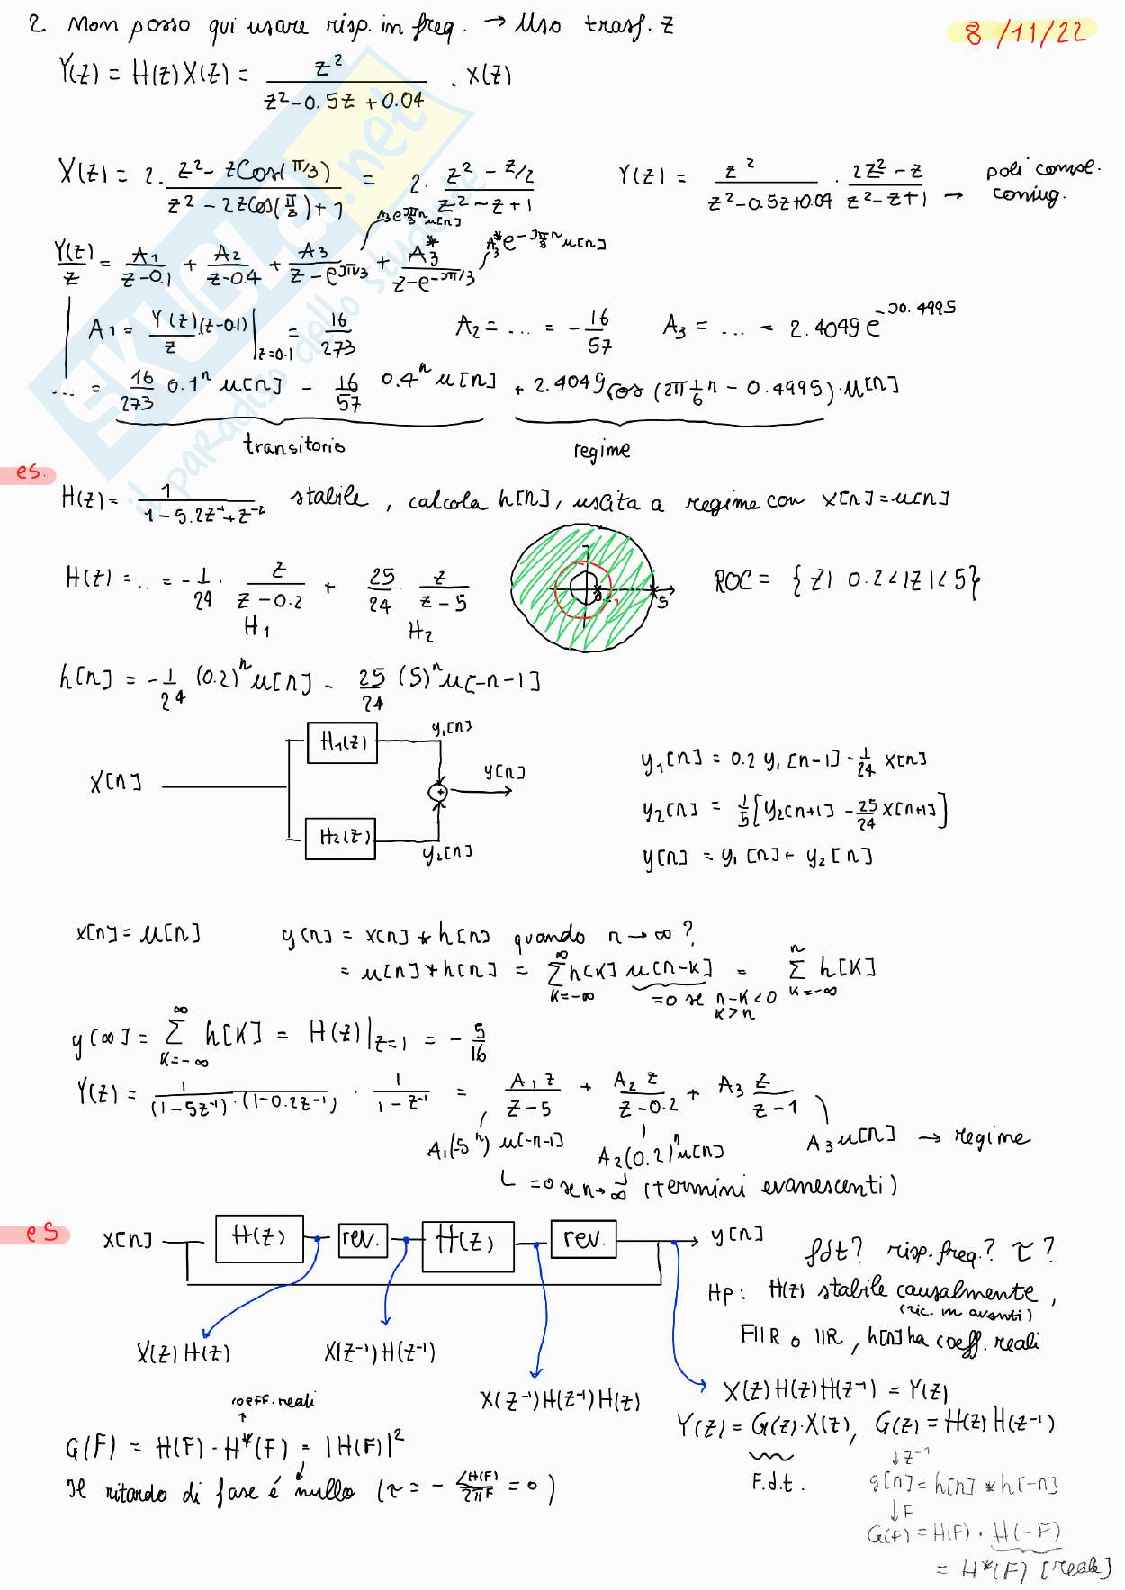 2. Non posso qui usare risp. in freq. → Uso trasf. Z
8/11/22
Y(z) = H(z)X(z) = z² / (z² - 0.5z + 0.04) . X(z)
X(z) = 2. (z² - zCos(π/3)) / (z² - 2zCos(π/3) + 1) = 2. (z² - z/2) / (z² - z + 1)
Y(z) = z² / (z² - 0.5z + 0.04) . (2z² - z) / (z² - z + 1) → poli compl. coniug.
A₃e^{jπ/3 n} u[n]
A₃* e^{-jπ/3 n} u[n]
Y(z)/z = A₁/(z-0.1) + A₂/(z-0.4) + A₃/(z-e^{jπ/3}) + A₃*/(z-e^{-jπ/3})
A₁ = Y(z)/z (z-0.1) |z=0.1 = 16/273
A₂ = ... = -16/57
A₃ = ... = 2.4049 e^{-j0.4995}
... = 16/273 0.1ⁿ u[n] - 16/57 0.4ⁿ u[n] + 2.4049 cos(2π 1/6 n - 0.4995) . u[n]
transitorio
regime
es.
H(z) = 1 / (1 - 5.2z⁻¹ + z⁻²) stabile, calcola h[n], uscita a regime con x[n] = u[n]
H(z) = .. = -1/24 . z/(z-0.2) + 25/24 . z/(z-5)
H₁
H₂
1
5
ROC = {z| 0.2<|z|<5}
h[n] = -1/24 (0.2)ⁿ u[n] - 25/24 (5)ⁿ u[-n-1]
X[n]
H₁(z)
y₁[n]
+
y[n]
H₂(z)
y₂[n]
y₁[n] = 0.2 y₁[n-1] - 1/24 x[n]
y₂[n] = 1/5 [y₂[n+1] - 25/24 x[n+1]]
y[n] = y₁[n] + y₂[n]
x[n] = u[n]
y[n] = x[n] * h[n] quando n → ∞ ?
= u[n] * h[n] = ∑_{K=-∞}^{∞} h[K] u[n-k] = ∑_{K=-∞}^{n} h[K]
=0 se n-k<0
k>n
y[∞] = ∑_{K=-∞}^{∞} h[K] = H(z)|z=1 = -5/16
Y(z) = 1 / ((1-5z⁻¹).(1-0.2z⁻¹)) . 1/(1-z⁻¹) = A₁z/(z-5) + A₂z/(z-0.2) + A₃ z/(z-1)
A₁(-5ⁿ) u[-n-1]
A₂(0.2)ⁿ u[n]
A₃ u[n] → regime
↳ =0 se n→∞ (termini evanescenti)
es
x[n]
H(z)
rev.
H(z)
rev.
y[n]
fdt? risp. freq.? τ?
Hp: H(z) stabile causalmente,
(ric. in avanti)
FIIR o IIR, h[n] ha coeff. reali
X(z)H(z)
X(z⁻¹)H(z⁻¹)
X(z⁻¹)H(z⁻¹)H(z)
X(z)H(z)H(z⁻¹) = Y(z)
Y(z) = G(z).X(z), G(z) = H(z)H(z⁻¹)
F.d.t.
↓ z⁻¹
g[n] = h[n] * h[-n]
↓ F
G(F) = H(F) . H(-F)
= H*(F) [reale]
coeff. reali
G(F) = H(F) . H*(F) = |H(F)|²
Il ritardo di fase é nullo (τ = -∠H(F)/2πF = 0)
SKUOLA.net
il paradiso dello studente